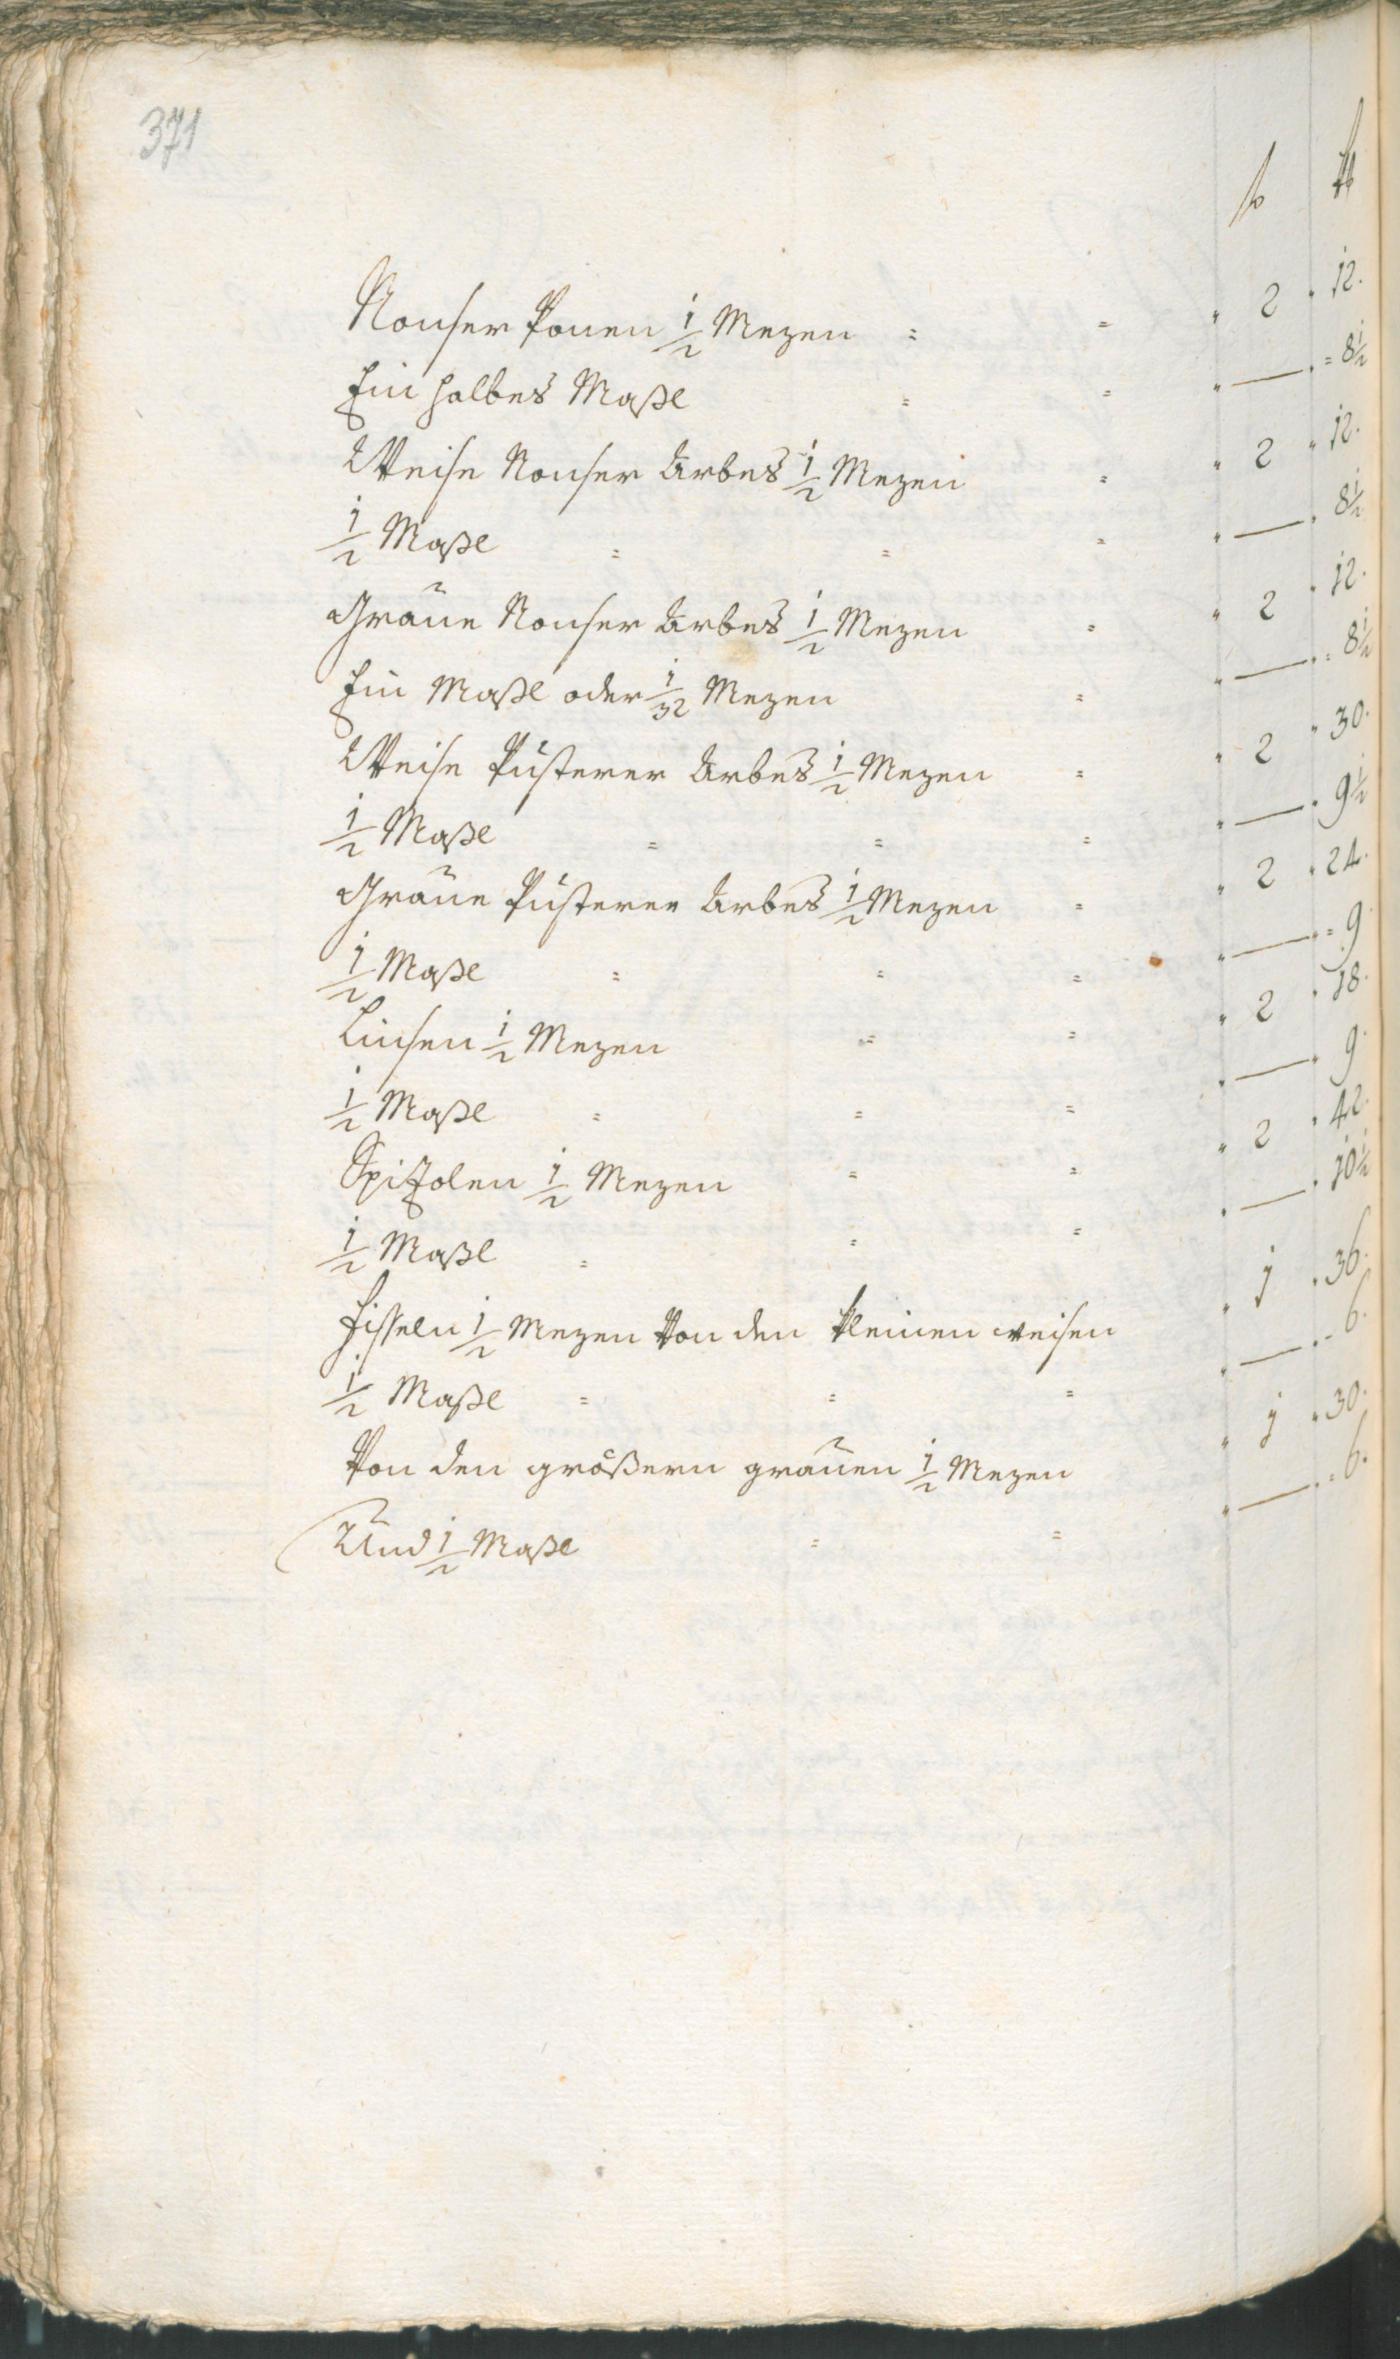 371
f xr
Nonser Ponen 1/2 Mezen = = " 2 " 12.
Ein halbes Maßl = = " — " = 8 1/2
Weise Nonser Arbes 1/2 Mezen = " 2 " 12.
1/2 Maßl = = = " — " 8 1/2
Graue Nonser Arbes 1/2 Mezen = " 2 " 12.
Ein Maßl oder 1/32 Mezen = " — " = 8 1/2
Weise Pusterer Arbes 1/2 Mezen = " 2 " 30.
1/2 Maßl = = = " — " 9 1/2
Graue Pusterer Arbes 1/2 Mezen = " 2 " 24.
1/2 Maßl = = = " — " = 9
Linsen 1/2 Mezen = = " 2 " 18.
1/2 Maßl = = = " — " 9.
1/2 Mezen = = " 2 " 42.
1/2 Maßl = = = " — " 10 1/2
Fisseln 1/2 Mezen Von den kleinen weisen " 1 " 36.
1/2 Maßl = = = " — " = 6.
Von den größern grauen 1/2 Mezen " 1 " 30.
Und 1/2 Maßl = = " — " = 6.